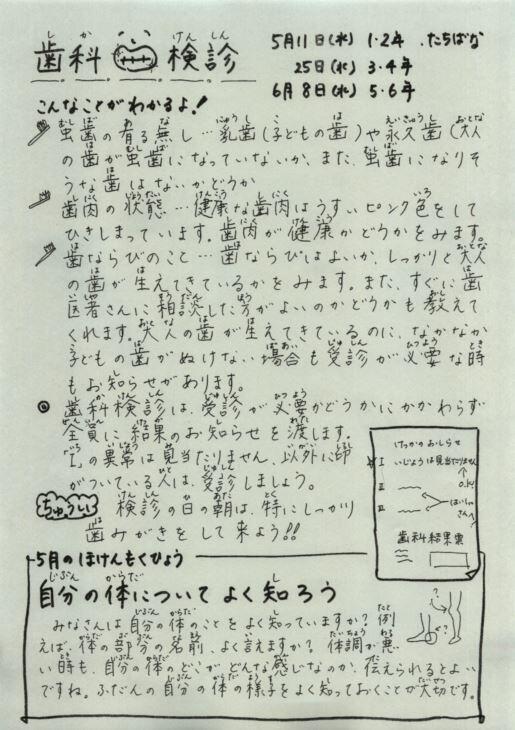 歯科検診
5月11日(水) 1・2年 .たちばな
25日(水) 3・4年
6月8日(水) 5・6年
こんなことがわかるよ!
虫歯の有る無し…乳歯(子どもの歯)や永久歯(大人
の歯が虫歯になっていないか、また、虫歯になりそ
うな歯はないかどうか
歯肉の状態…健康な歯肉はうすいピンク色をして
ひきしまっています。歯肉が健康かどうかをみます。
歯ならびのこと…歯ならびはよいか、しっかりと大人
の歯が生えてきているかをみます。また、すぐに歯
医者さんに相談した方がよいのかどうかも教えて
くれます。大人の歯が生えてきているのに、なかなか
子どもの歯がぬけない場合も受診が必要な時
もお知らせがあります。
歯科検診は、受診が必要かどうかにかかわらず
全員に結果のお知らせを渡します。
「I」の異常は見当たりません、以外に印
がついている人は、受診しましょう。
ちゅうい 検診の日の朝は、特にしっかり
歯みがきをして来よう!!
けっかのおしらせ
I いじょうは見当たりません
O.K!
II
III
はいしゃさんへ
歯科結果票
5月のほけんもくひょう
自分の体についてよく知ろう
みなさんは自分の体のことをよく知っていますか?例
えば、体の部分の名前、よく言えますか?体調が悪
い時も、自分の体のどこがどんな感じなのか、伝えられるとよい
ですね。ふだんの自分の体の様子をよく知っておくことが大切です。